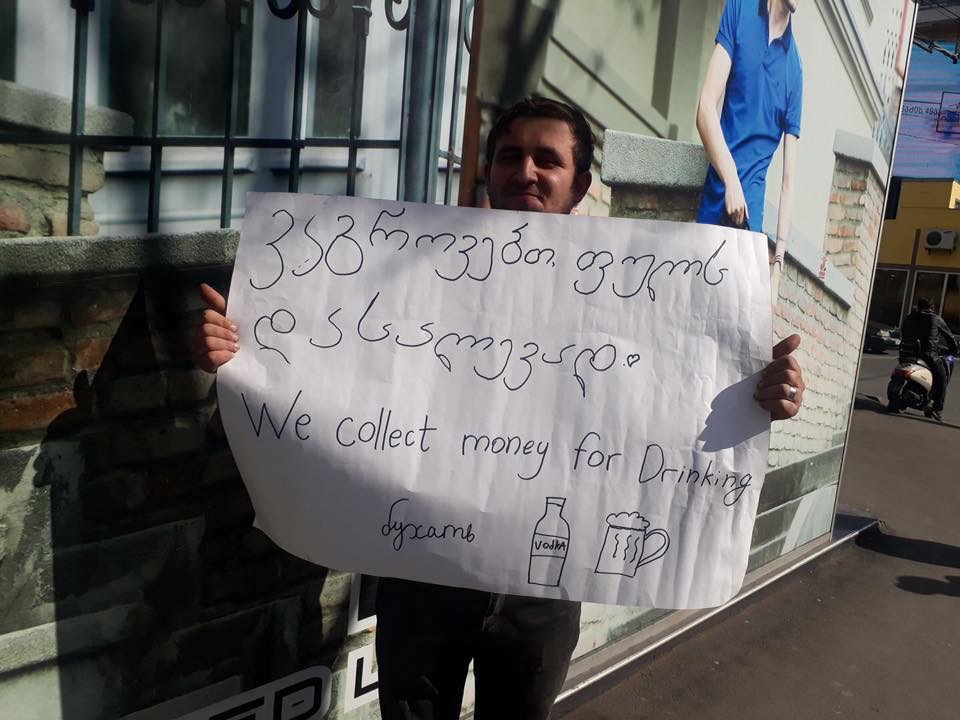 ვაგროვებთ ფულს
დასალევად.
We collect money for Drinking
бухать
VODKA